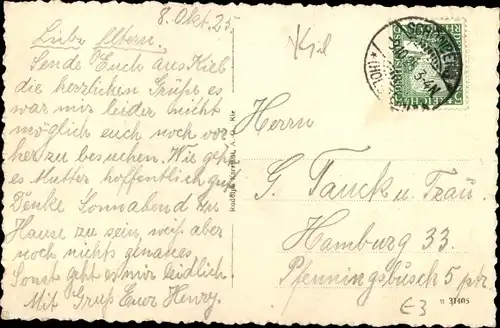 8. Okt. 25.
Liebe Eltern.
Sende Euch aus Kiel
die herzlichen Grüße es
war mir leider nicht
möglich euch noch vor
her zu besuchen. Wie geht
es Mutter hoffentlich gut
Denke Sonnabend zu
Hause zu sein, weiß aber
noch nichts genaues
Sonst geht es mir leidlich.
Mit Gruß Euer Henry.
Kiel
Herrn
G. Tauck u. Frau.
Hamburg 33.
Pfenningsbusch 5 ptr.
n 31405
E3